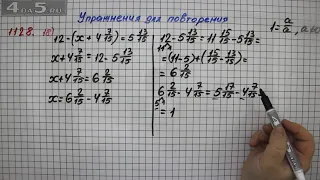 4 A 5.RU
Упражнения для повторения
1128. б)
12-(x+4 7/15)=5 13/15
x+4 7/15=12-5 13/15
x+4 7/15=6 2/15
x=6 2/15-4 7/15
12-5 13/15=11 15/15-5 13/15=
=(11-5)+(15/15-13/15)=
=6 2/15
6 2/15-4 7/15=5 17/15-4 7/15
=1
1=a/a